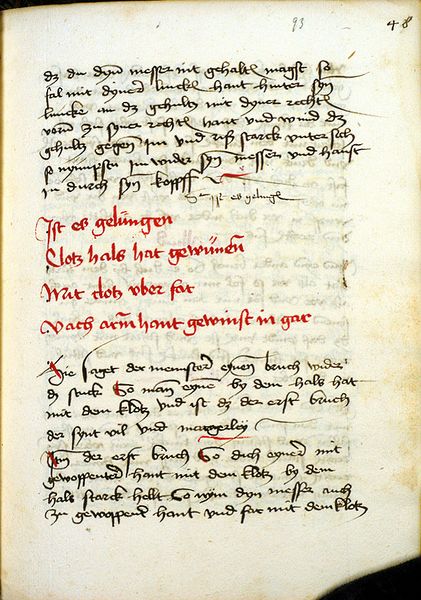 93
48
dz du dyn messer nit gehaltn magst so
fal mit dyner lincken hant hinter syn
lincke an dz gehultz mit dyner rechten
vorn zu syner rechten hant vnd wind dz
gehultz gegen im vnd riß starck vnter sich
so nympstu im wider syn messer vnd haust
in durch syn kopff
ist es gelungen
Ist es gelungen
Clotz hals hat gewunen
Mit clotz vber far
Nach arm hant gewinst in gar
Hie saget der meinster eynen bruch wider
dz stuck So man eyne by dem hals hat
mit dem klotz vnd ist dz der erst bruch
der synt vil vnd mangerley
Item der erst bruch So dich eyner mit
gewoppenter hant mit dem klotz by dem
hals starck helt So nym dyn messer auch
zu gewoppent hant vnd far mit dem klotz